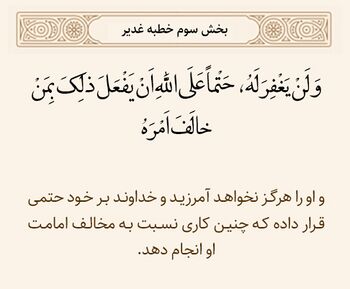 بخش سوم خطبه غدیر
وَ لَنْ يَغْفِرَ لَهُ، حَتْماً عَلَى اللهِ اَنْ يَفْعَلَ ذلِكَ بِمَنْ
خالَفَ اَمْرَهُ
و او را هرگز نخواهد آمرزید و خداوند بر خود حتمی
قرار داده که چنین کاری نسبت به مخالف امامت
او انجام دهد.